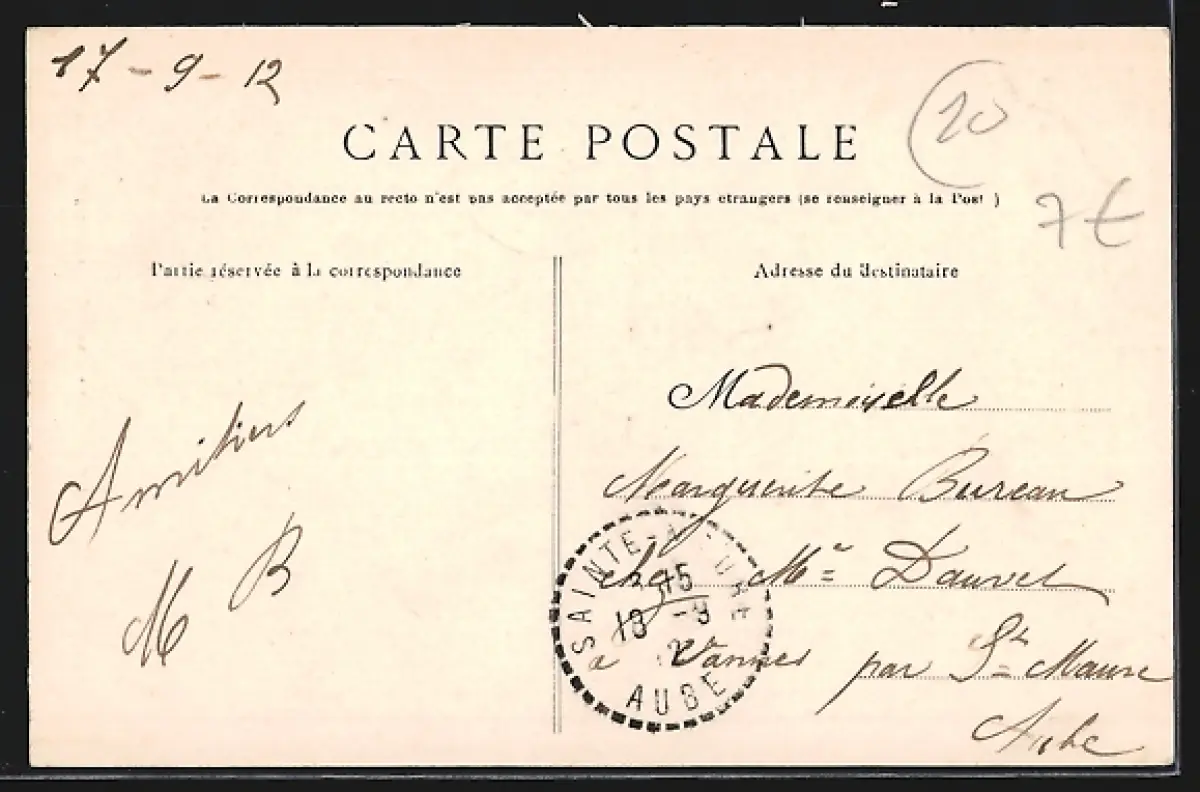 17-9-12
20
CARTE POSTALE
7€
La Correspondance au recto n'est pas acceptée par tous les pays étrangers (se renseigner à la Post )
Partie réservée à la correspondance
Adresse du destinataire
Amitiés
M B
Mademoiselle
Marguerite Bureau
chez Mr Dauvet
a Vannes par Ste Maure
Aube
SAINTE-MAURE
15
18 -9
12
AUBE